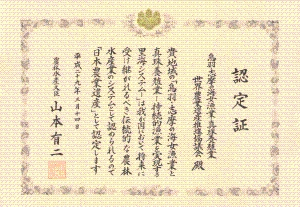 認定証
鳥羽・志摩の海女漁業と真珠養殖業
世界農業遺産推進協議会 殿
貴地域の「鳥羽・志摩の海女漁業と
真珠養殖業－持続的漁業を実現する
里海システム－」は我が国において将来に
受け継がれるべき伝統的な農林
水産業のシステムとして認められるので
「日本農業遺産」として認定します
平成二十九年三月十四日
農林水産大臣 山本有二